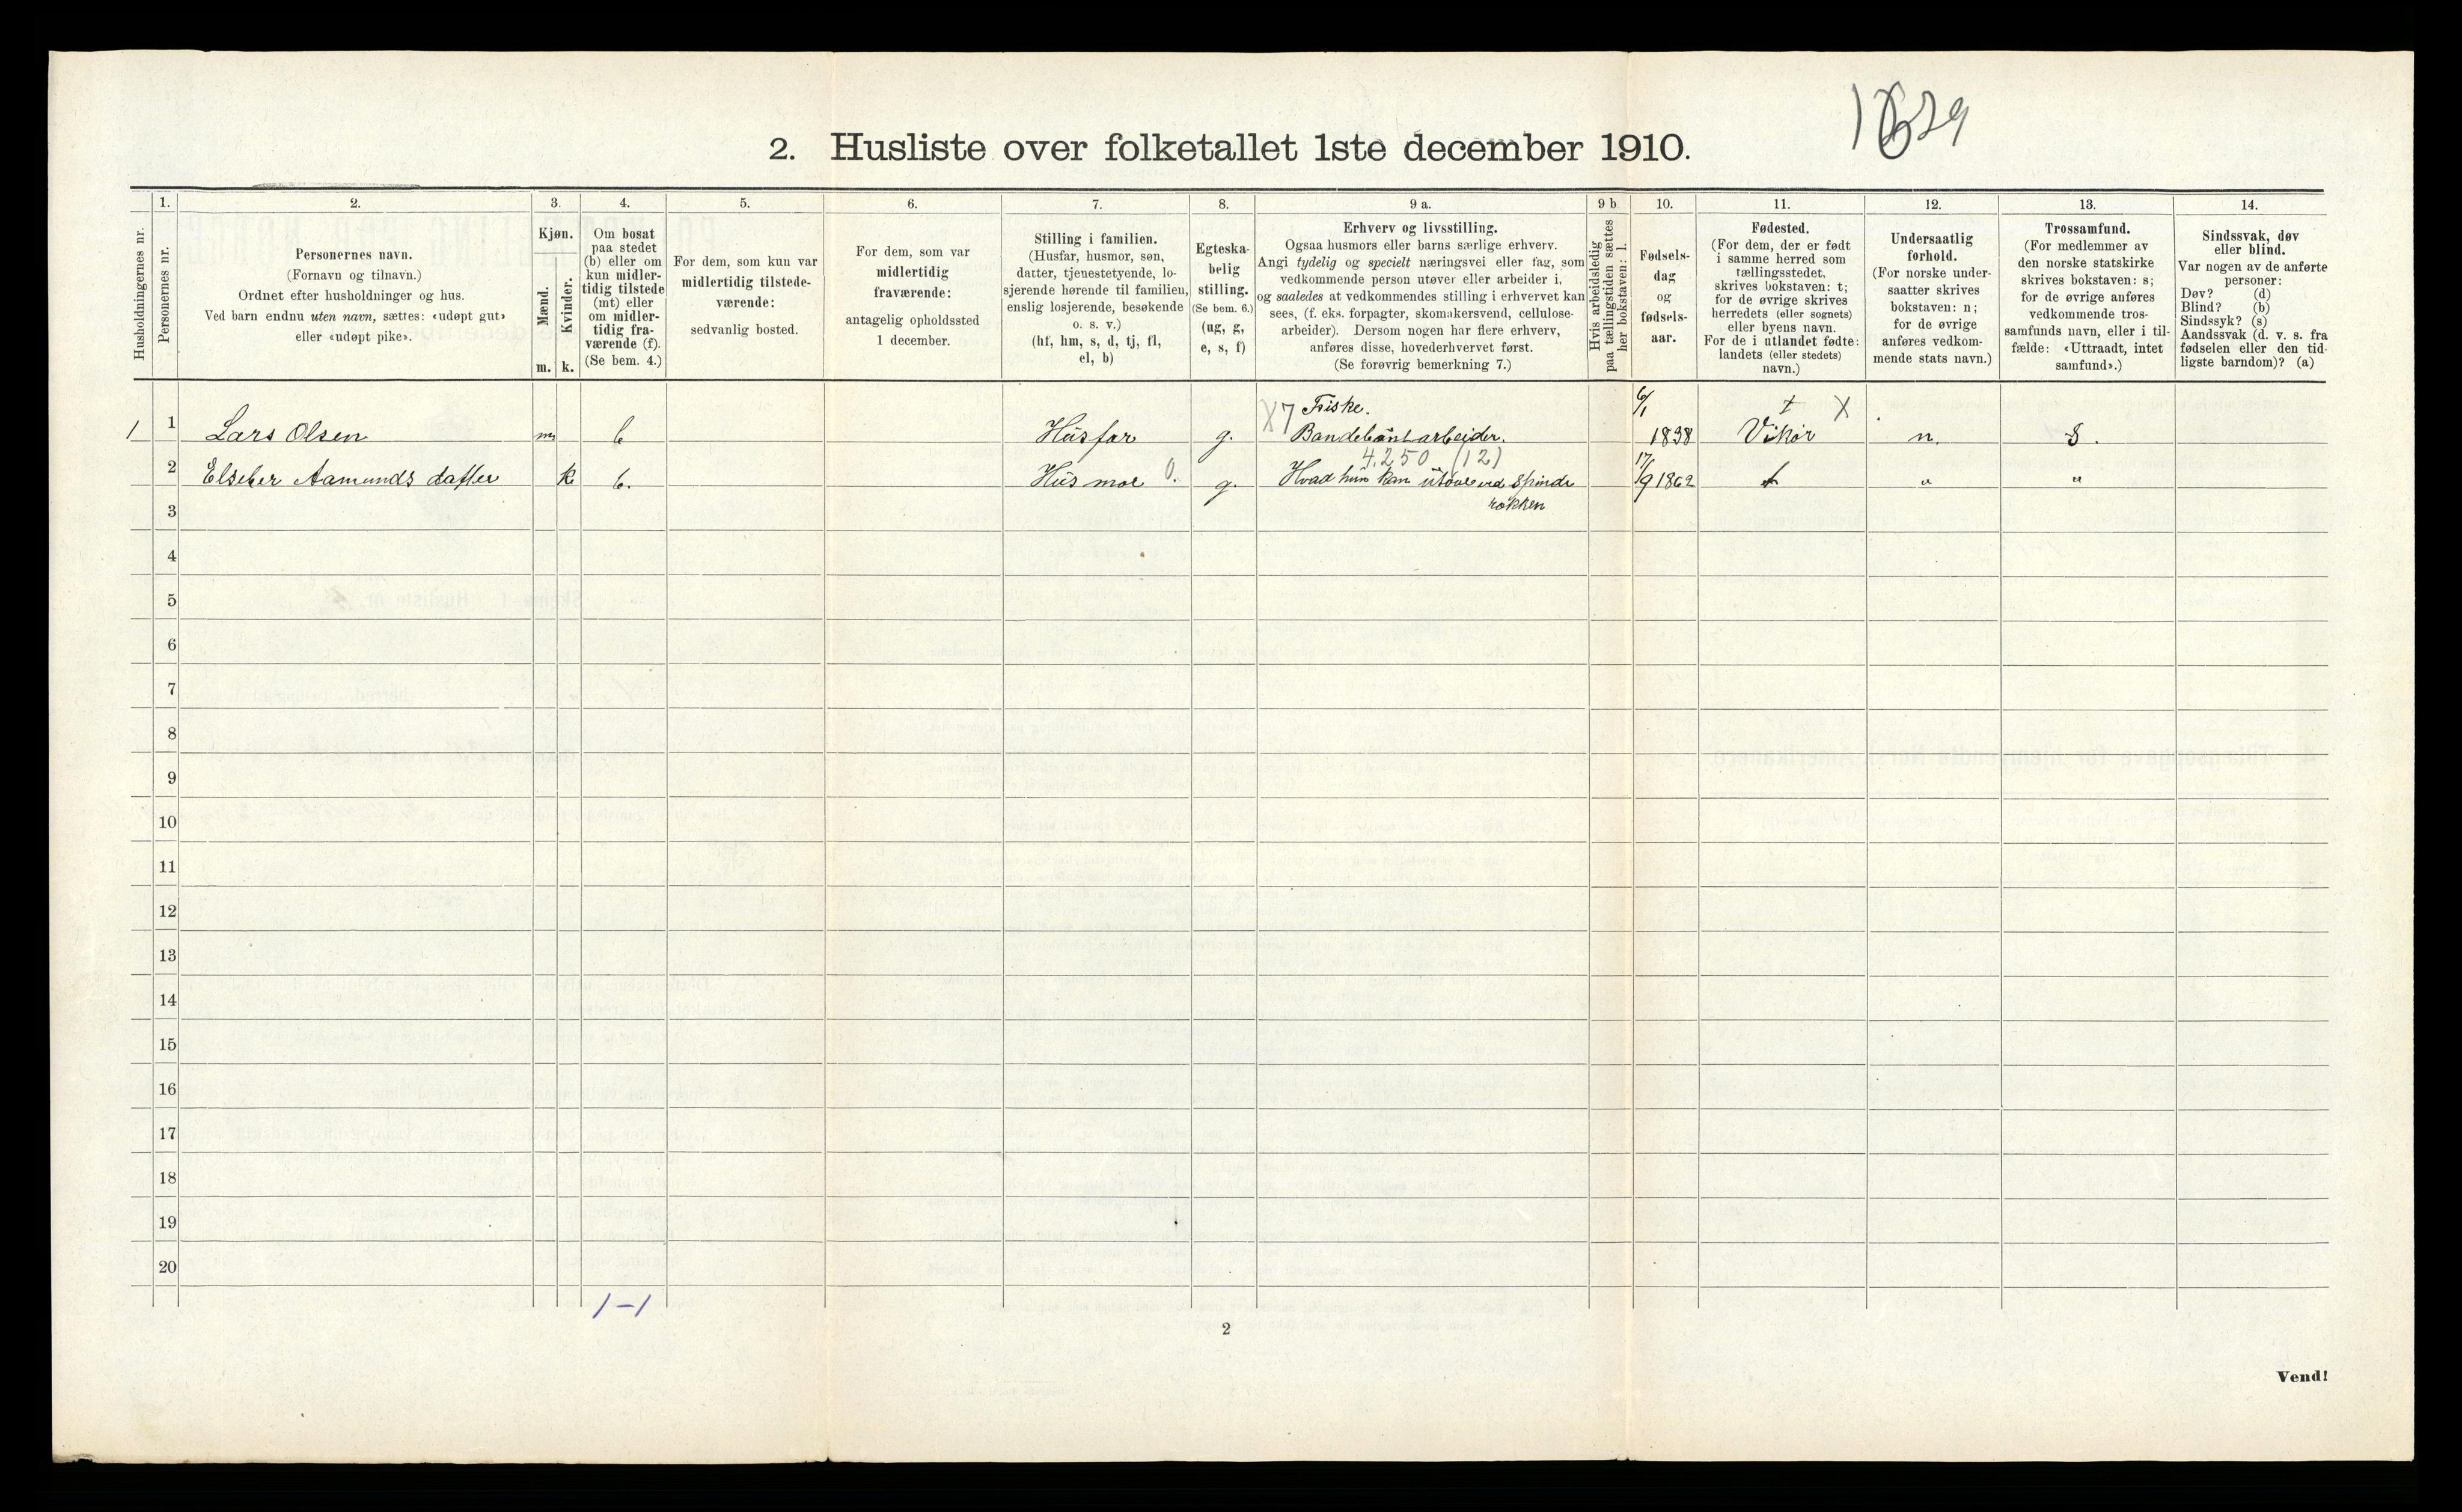 2. Husliste over folketallet 1ste december 1910.
Husholdningernes nr.
1.
Personernes nr.
2.
Personernes navn.
(Fornavn og tilnavn.)
Ordnet efter husholdninger og hus.
Ved barn endnu uten navn, sættes: «udøpt gut»
eller «udøpt pike».
3.
Kjøn.
Mænd.
Kvinder.
m. k.
4.
Om bosat
paa stedet
(b) eller om
kun midler-
tidig tilstede
(mt) eller
om midler-
tidig fra-
værende (f).
(Se bem. 4.)
5.
For dem, som kun var
midlertidig tilstede-
værende:
sedvanlig bosted.
6.
For dem, som var
midlertidig
fraværende:
antagelig opholdssted
1 december.
7.
Stilling i familien.
(Husfar, husmor, søn,
datter, tjenestetyende, lo-
sjerende hørende til familien,
enslig losjerende, besøkende
o. s. v.)
(hf, hm, s, d, tj, fl,
el, b)
8.
Egteska-
belig
stilling.
(Se bem. 6.)
(ug, g,
e, s, f)
9 a.
Erhverv og livsstilling.
Ogsaa husmors eller barns særlige erhverv.
Angi tydelig og specielt næringsvei eller fag, som
vedkommende person utøver eller arbeider i,
og saaledes at vedkommendes stilling i erhvervet kan
sees, (f. eks. forpagter, skomakersvend, cellulose-
arbeider). Dersom nogen har flere erhverv,
anføres disse, hovederhvervet først.
(Se forøvrig bemerkning 7.)
9 b
Hvis arbeidsledig
paa tællingstiden sættes
her bokstaven: l.
10.
Fødsels-
dag
og
fødsels-
aar.
11.
Fødested.
(For dem, der er født
i samme herred som
tællingsstedet,
skrives bokstaven: t;
for de øvrige skrives
herredets (eller sognets)
eller byens navn.
For de i utlandet fødte:
landets (eller stedets)
navn.)
12.
Undersaatlig
forhold.
(For norske under-
saatter skrives
bokstaven: n;
for de øvrige
anføres vedkom-
mende stats navn.)
13.
Trossamfund.
(For medlemmer av
den norske statskirke
skrives bokstaven: s;
for de øvrige anføres
vedkommende tros-
samfunds navn, eller i til-
fælde: «Uttraadt, intet
samfund».)
14.
Sindssvak, døv
eller blind.
Var nogen av de anførte
personer:
Døv? (d)
Blind? (b)
Sindssyk? (s)
Aandssvak (d. v. s. fra
fødselen eller den tid-
ligste barndom)? (a)
X 7 Fiske. 6/1 t X
1 1 Lars Olsen m b Husfar g. 1838 Vikør n. S.
4.250 (12)
2 Elseber Aamunds datter k b. Husmor 0. g. Hvad hun kan utøve ved Spinde 17/9 1862 t " "
rokken
3
4
5
6
7
8
9
10
11
12
13
14
15
16
17
18
19
20
1 – 1
2
Vend!